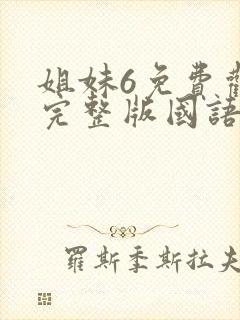 姐妹6免費觀
完整版國語
羅斯季斯拉夫